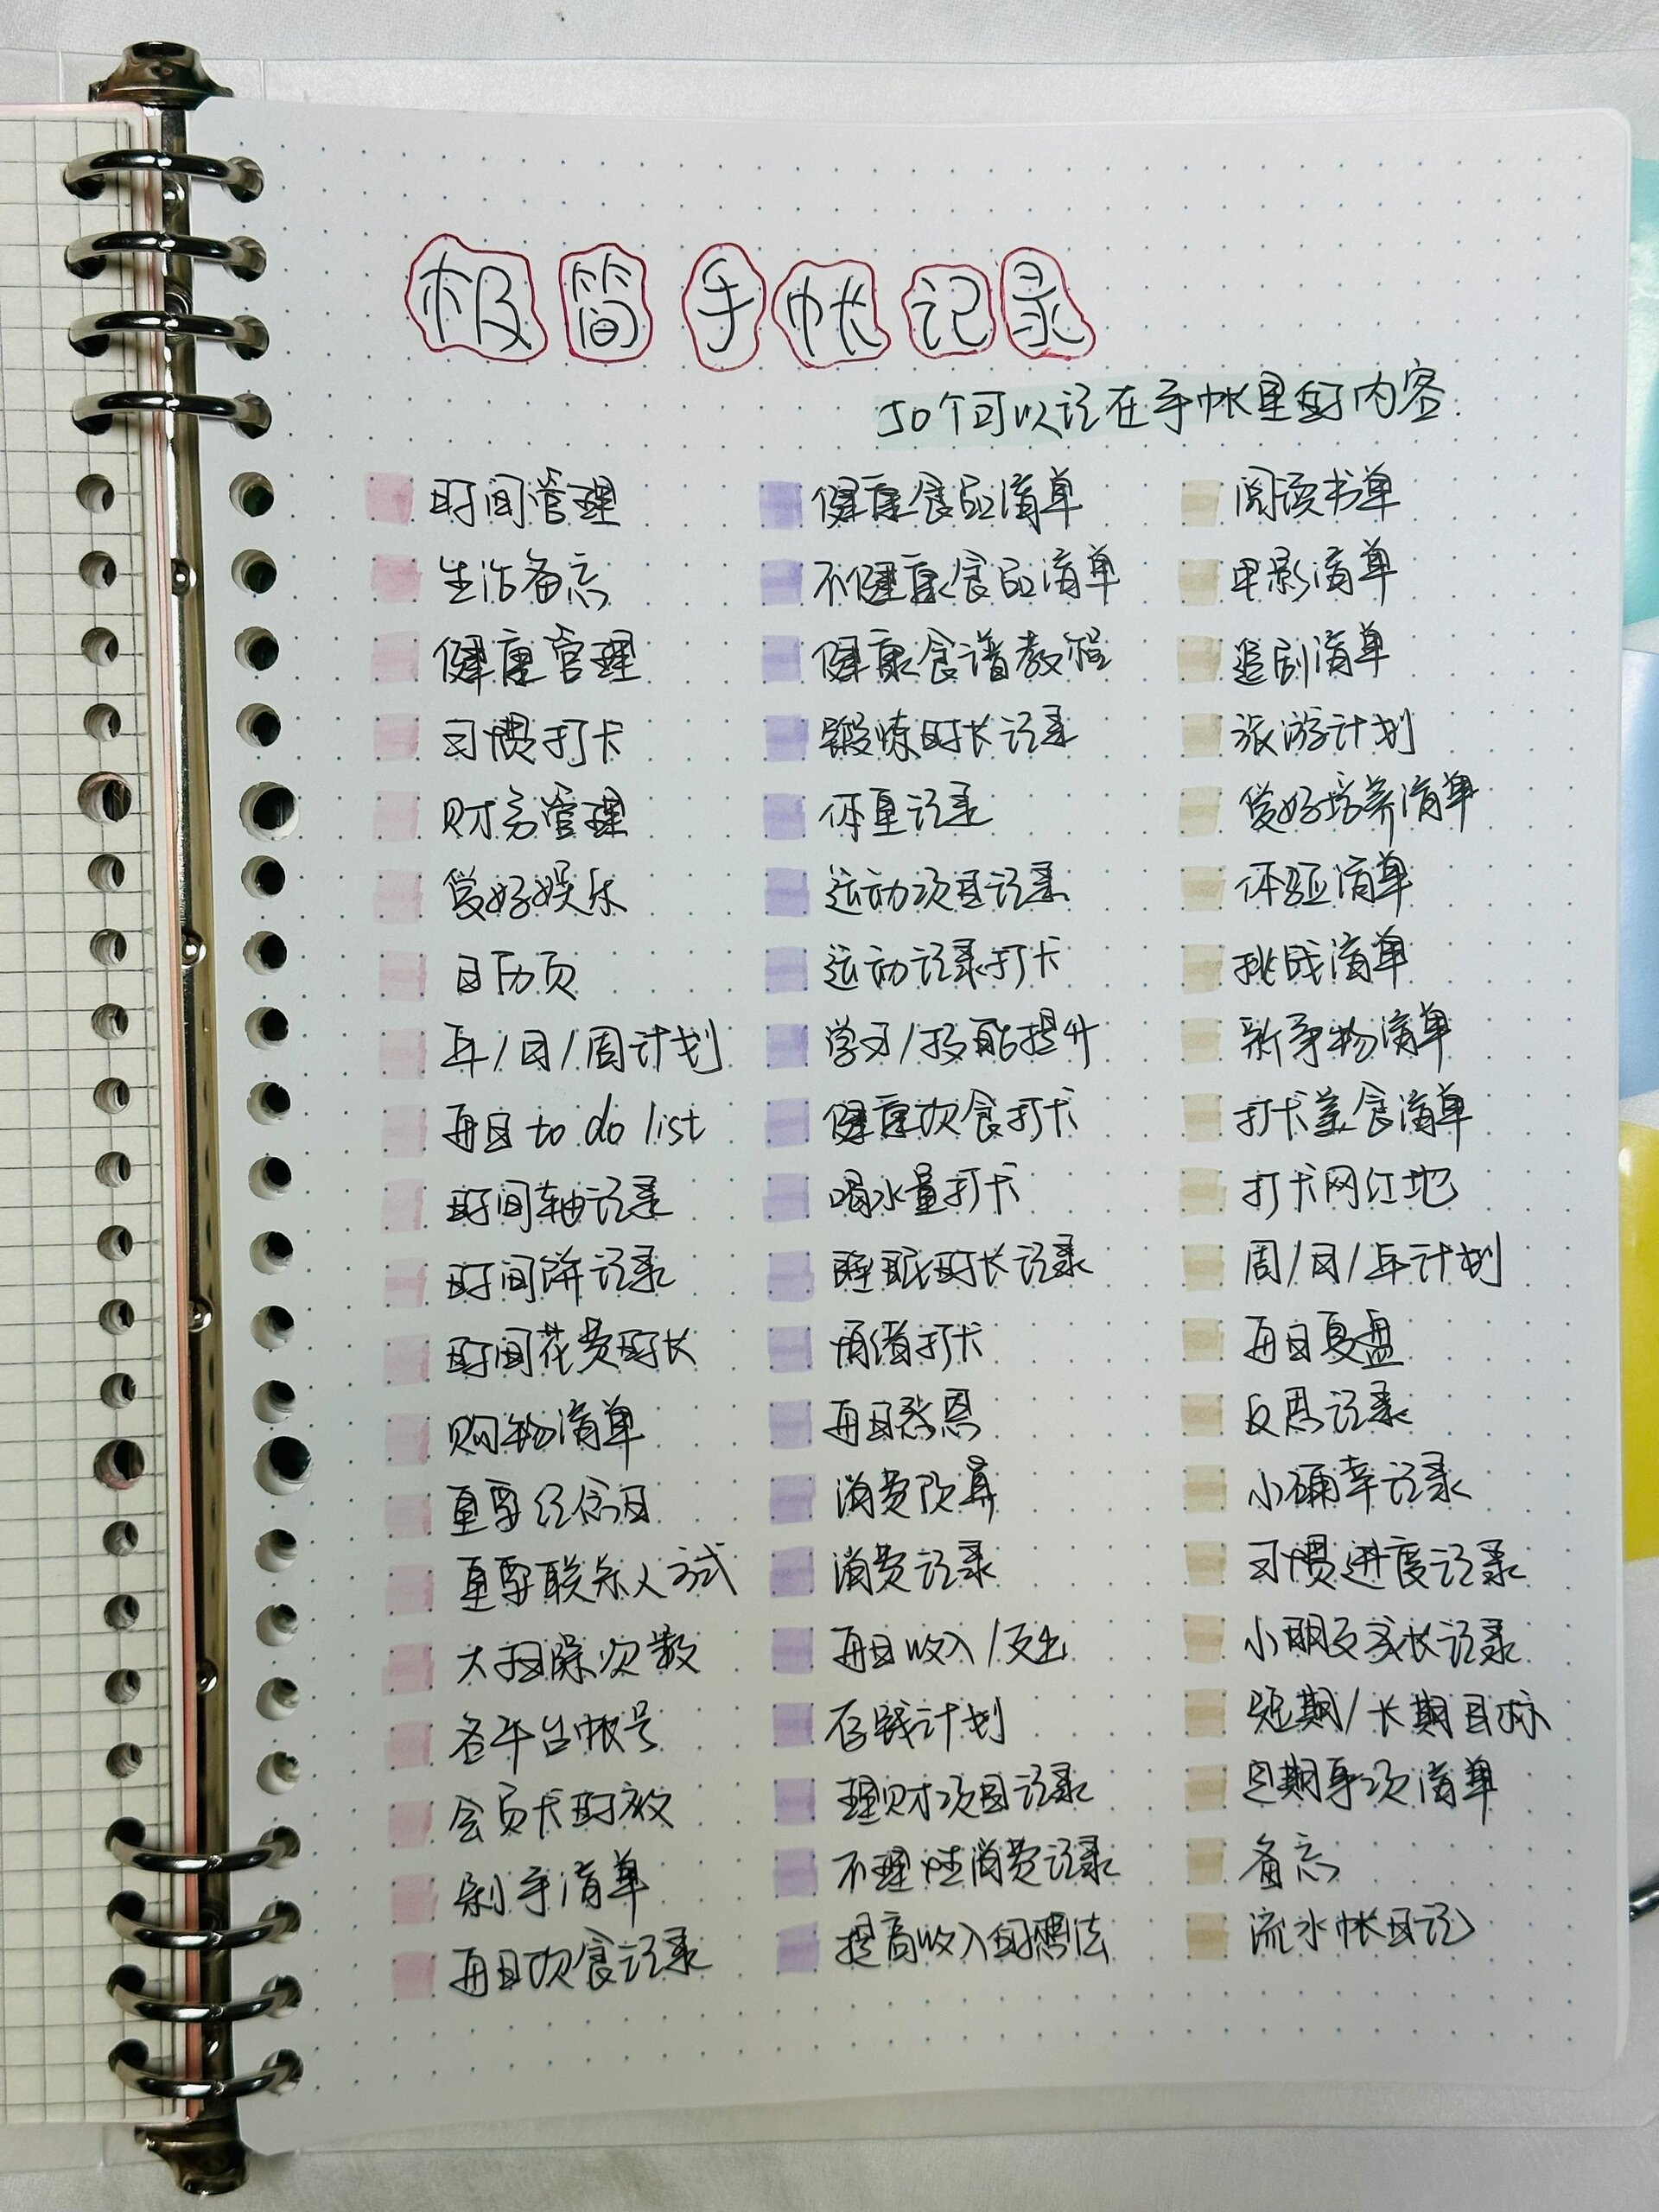 极简手帐记录
50个可以记在手帐里的内容.
时间管理
生活备忘
健康管理
习惯打卡
财务管理
爱好娱乐
日历页
年/月/周计划
每日to do list
时间轴记录
时间饼记录
时间花费时长
购物清单
重要纪念日
重要联系人方式
大扫除次数
各平台帐号
会员卡时效
剁手清单
每日饮食记录
健康食品清单
不健康食品清单
健康食谱教程
锻炼时长记录
体重记录
运动项目记录
运动记录打卡
学习/技能提升
健康饮食打卡
喝水量打卡
睡眠时长记录
情绪打卡
每日感恩
消费预算
消费记录
每日收入/支出
存钱计划
理财项目记录
不理性消费记录
提高收入的想法
阅读书单
电影清单
追剧清单
旅游计划
爱好培养清单
体验清单
挑战清单
新事物清单
打卡美食清单
打卡网红地
周/月/年计划
每日复盘
反思记录
小确幸记录
习惯进度记录
小朋友成长记录
短期/长期目标
定期事项清单
备忘
流水帐日记